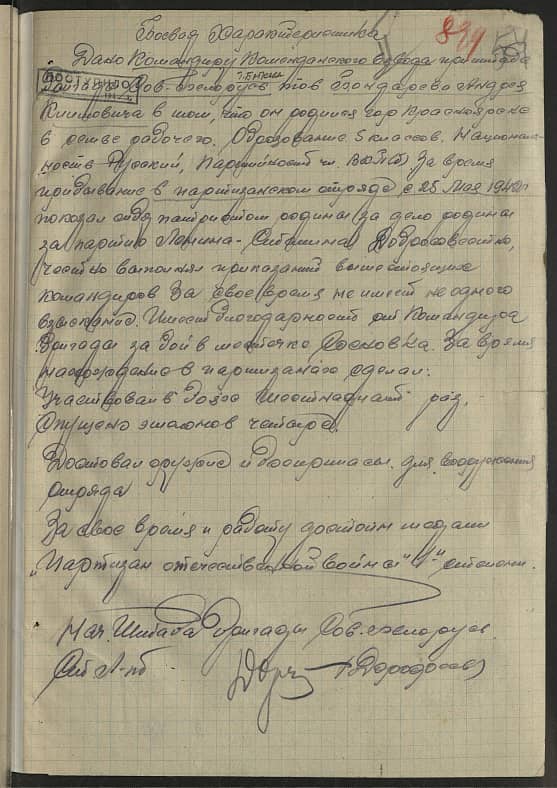 Боевая Характеристика
894
Дано Командиру Комендантского взвода при штаба
ПОСТУПИЛО
Сов-Белоруссь тов Бондарева Андрея
Климовича в том, что он родился гор Красноярске
в семье рабочего. Образование 5 классов. Националь-
ность Русский, Партийность чл. ВКП(б) За время
прибывание в партизанском отряде с 25 Мая 1942г
показал себя патриотом родины за дело родины
за партию Ленина-Сталина Добросовестно,
честно выполнял приказаний вышестоящих
командиров За свое время не имеет не одного
взыскание. Имеет благодарность от Командира
Бригады за бой в местечко Сосновка. За время
нахождение в партизанах сделал:
Участвовал в боях шестнадцать раз,
Спущено эшалонов четыре.
Доставал оружие и боеприпасы для вооружения
отряда
За свое время и работу достоин медали
„Партизан отечественной войны" "1" степени.
Нач. Штаба Бригады Сов. Белорусь
Ст Л-нт